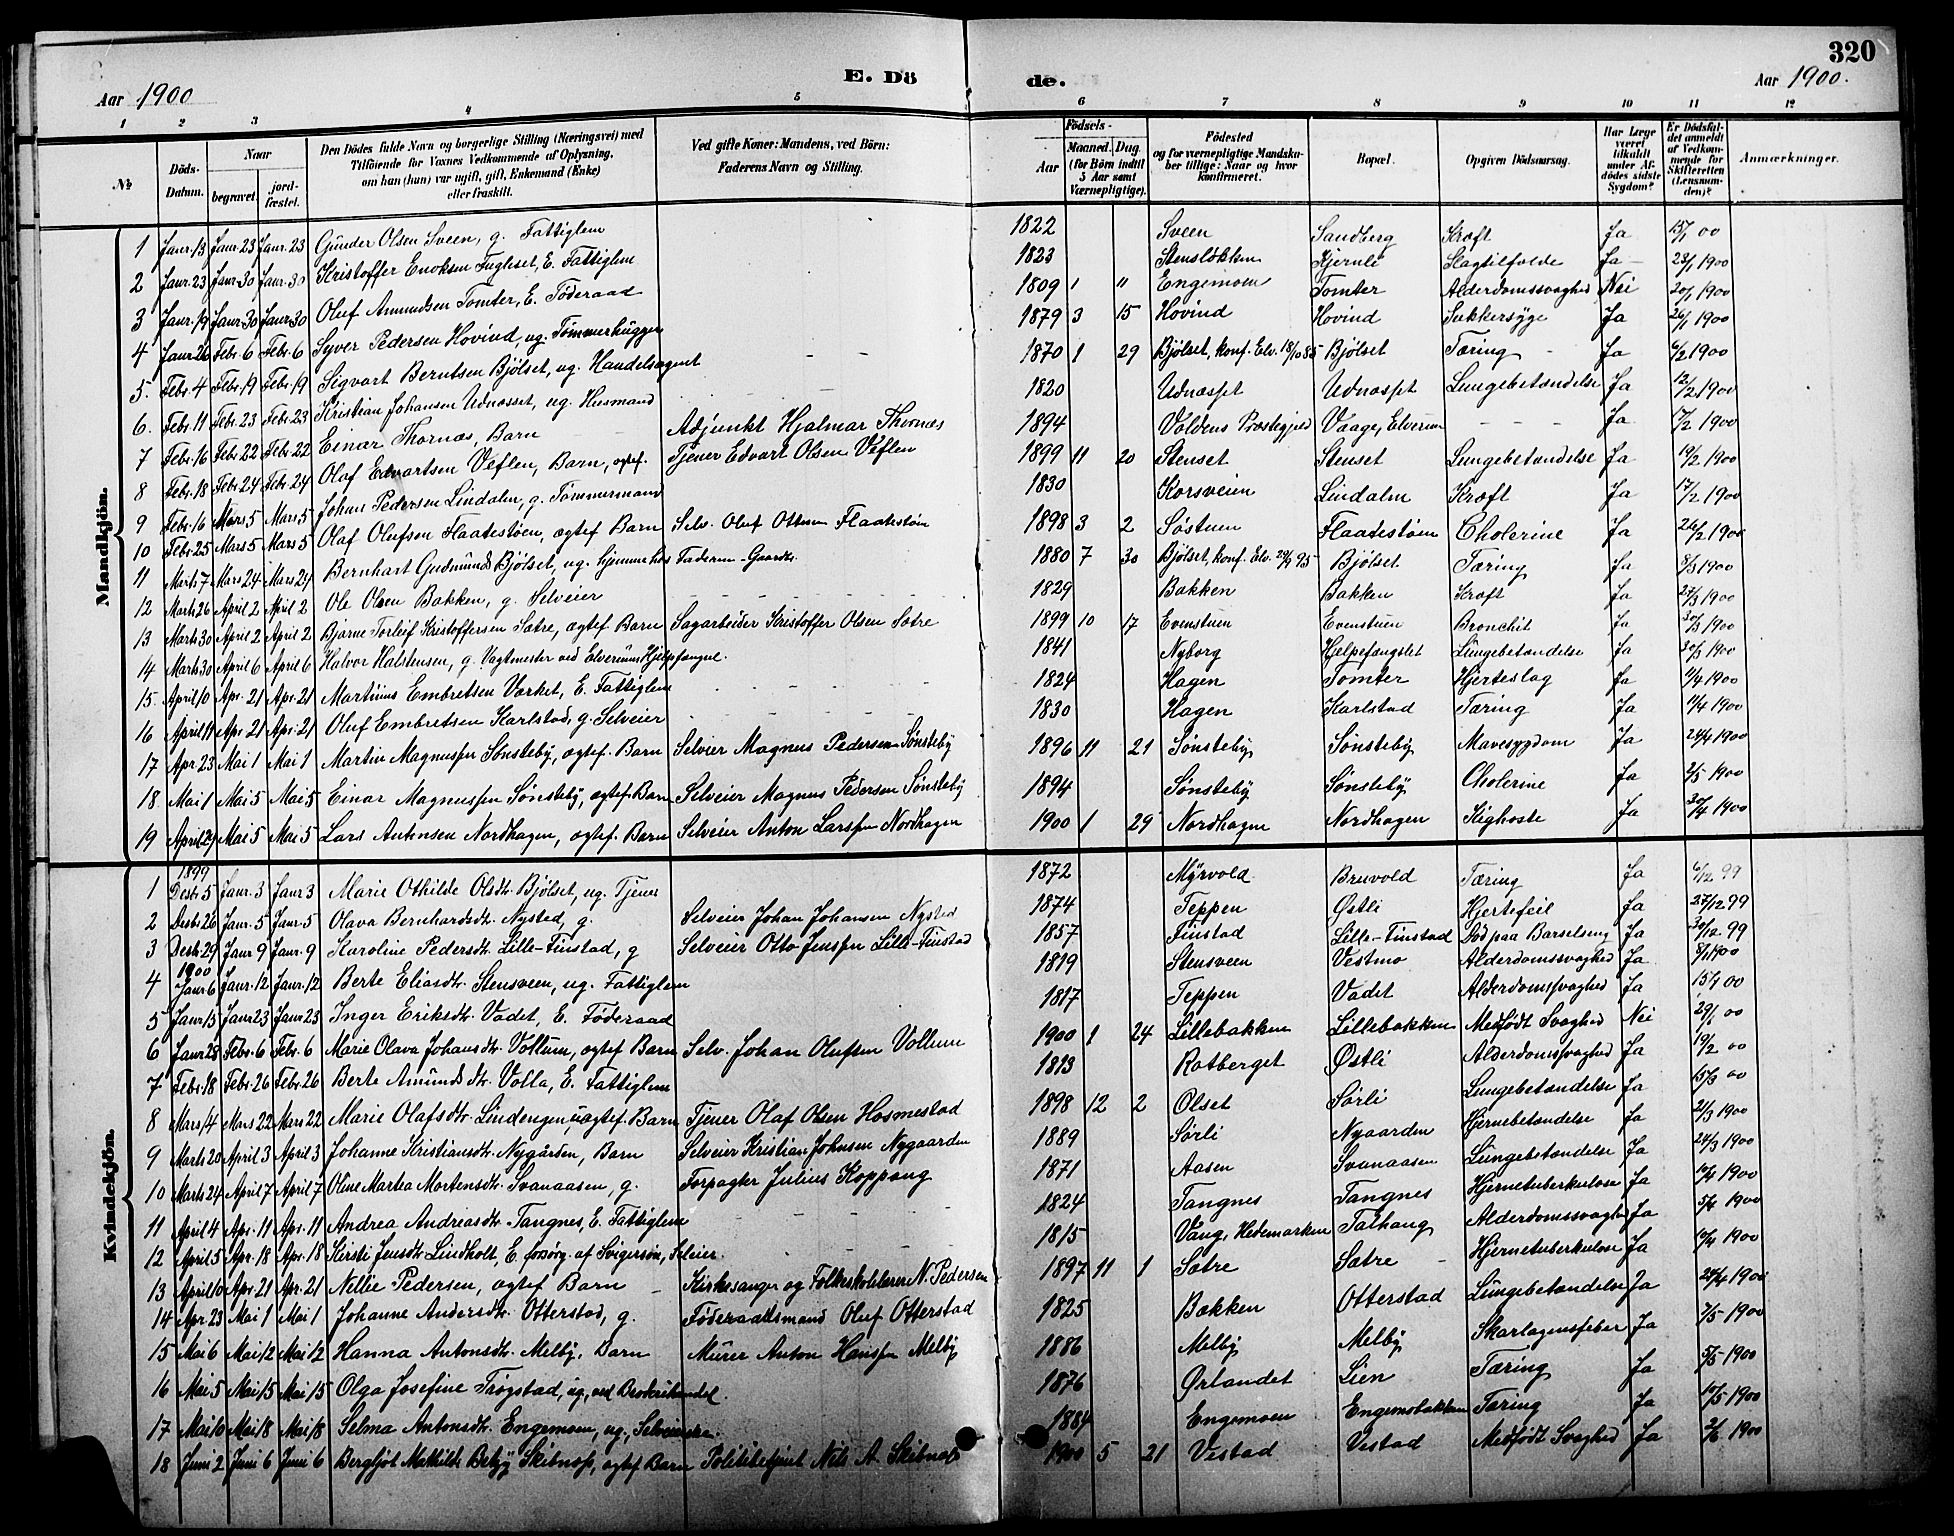 320
E. Dö de.
Aar 1900
Aar 1900.
1 2 3 4 5 6 7 8 9 10 11 12
No
Döds-Datum.
Naar
begravet.
jord-fæstet.
Den Dödes fulde Navn og borgerlige Stilling (Næringsvei) med Tilföiende for Voxnes Vedkommende af Oplysning, om han (hun) var ugift, gift, Enkemand (Enke) eller fraskilt.
Ved gifte Koner: Mandens, ved Börn: Faderens Navn og Stilling.
Födsels-
Aar
Maaned. Dag.
(for Börn indtil 5 Aar samt Værnepligtige).
Födested og for værnepligtige Mandskaber tillige: Naar og hvor konfirmeret.
Bopæl.
Opgiven Dödsaarsag.
Har Læge været tilkaldt under Afdödes sidste Sygdom?
Er Dödsfaldet anmeldt af Vedkommende for Skifteretten (Lensmanden)?
Anmærkninger.
Mandkjön.
1 Janr. 13 Janr. 23 Janr. 23 Gunder Olsen Sveen, g. Fattiglem 1822 Sveen Sandberg Kræft Ja 15/1 00
2 Janr. 23 Janr. 30 Janr. 30 Kristoffer Enoksen Fugleset, E. Fattiglem 1823 Stensløkken Kjernli Slagtilfælde Ja 23/1 1900
3 Janr. 19 Janr. 30 Janr. 30 Oluf Amundsen Tomter, E. Føderaad 1809 1 " Engemoen Tomter Alderdomssvaghed Nei 20/1 1900
4 Janr. 26 Febr. 6 Febr. 6 Syver Pedersen Hovind, ug. Tømmerhugger 1879 3 15 Hovind Hovind Sukkersyge Ja 26/1 1900
5. Febr. 4 Febr. 19 Febr. 19 Sigvart Berntsen Bjølset, ug. Handelsagent 1870 1 29 Bjølset, konf. Elv. 18/10 85 Bjølset Tæring Ja 6/2 1900
6. Febr. 11 Febr. 23 Febr. 23 Kristian Johansen Udnæsset, ug. Husmand 1820 Udnæsset Udnæsset Lungebetændelse Ja 12/2 1900
7 Febr. 16 Febr. 22 Febr. 22 Einar Thornæs, Barn Adjunkt Hjalmar Thornæs 1894 Voldens Præstegjeld Vaage, Elverum Ja 17/2 1900
8 Febr. 18 Febr. 24 Febr. 24 Olaf Edvartsen Veflen, Barn, ægtef. Tjener Edvart Olsen Veflen 1899 11 20 Stenset Stenset Lungebetændelse Ja 19/2 1900
9 Febr. 16 Mars 5 Mars 5 Johan Pedersen Lindalm, g. Tømmermand 1830 Korsveien Lindalm Kræft Ja 17/2 1900
10 Febr. 25 Mars 5 Mars 5 Olaf Olufsen Flaatestøen, ægtef. Barn Selv. Oluf Ottsen Flaatestøen 1898 3 2 Søstuen Flaatestøen Cholerine Ja 26/2 1900
11 Marts 7 Mars 24 Mars 24 Bernhart Gudmunds Bjølset, ug. hjemme hos Faderen - Gaardb. 1880 7 30 Bjølset, konf. Elv. 29/9 95 Bjølset Tæring Ja 8/3 1900
12 Marts 26 April 2 April 2 Ole Olsen Bakken, g. Selveier 1829 Bakken Bakken Kræft Ja 27/3 1900
13 Marts 30 April 2 April 2 Bjarne Torleif Kristoffersen Sætre, ægtef. Barn Sagarbeider Kristoffer Olsen Sætre 1899 10 17 Evenstuen Evenstuen Bronchit Ja 30/3 1900
14 Marts 30 April 6 April 6 Halvor Halstensen, g. Vagtmester ved Elverums Hjelpefængsel. 1841 Nyborg Hjelpefængslet Lungebetændelse Ja 30/3 1900
15. April 10 Apr. 21 Apr. 21 Martinus Embretsen Værket, E. Fattiglem 1824 Hagen Tomter Hjerteslag Ja 11/4 1900
16 April 11 Apr. 21 Apr. 21 Oluf Embretsen Karlstad, g. Selveier 1830 Hagen Karlstad Tæring Ja 11/4 1900
17 Apr. 23 Mai 1 Mai 1 Martin Magnussen Sønsteby, ægtef. Barn Selveier Magnus Pedersen Sønsteby 1896 11 21 Sønsteby Sønsteby Mavesygdom Ja 24/4 1900
18 Mai 1 Mai 5 Mai 5 Einar Magnussen Sønsteby, ægtef. Barn Selveier Magnus Pedersen Sønsteby 1894 Sønsteby Sønsteby Cholerine Ja 2/5 1900
19 April 29 Mai 5 Mai 5 Lars Antonsen Nordhagen, ægtef. Barn Selveier Anton Larssen Nordhagen 1900 1 29 Nordhagen Nordhagen Kighoste Ja 30/4 1900
Kvindekjön.
1899
1 Desbr. 5 Janr. 3 Janr. 3 Marie Othilde Olsdtr. Bjølset, ug. Tjener 1872 Myrvold Bruvold Tæring Ja 6/12 99
2 Desbr. 26 Janr. 5 Janr. 5 Olava Bernhardsdtr. Nysted, g. Selveier Johan Johansen Nysted 1874 Teppen Østli Hjertefeil Ja 27/12 99
3 Desbr. 29 Janr. 9 Janr. 9 Karoline Pedersdtr. Lille-Finstad, g Selveier Otto Jenssen Lille-Finstad 1857 Finstad Lille-Finstad Død paa Barselseng Ja 30/12 99
1900
4 Janr. 6 Janr. 12 Janr. 12 Berte Eliasdtr. Stensveen, ug. Fattiglem 1819 Stensveen Vestmo Alderdomssvaghed Ja 8/1 1900
5 Janr. 15 Janr. 23 Janr. 23 Inger Eriksdtr. Vadet, E. Føderaad 1817 Teppen Vadet Alderdomssvaghed Ja 15/1 00
6 Janr. 28 Febr. 6 Febr. 6 Marie Olava Johansdtr. Vollum, ægtef. Barn Selv. Johan Olufsen Vollum 1900 1 24 Lillebakken Lillebakken Medfødt Svaghed Nei 29/1 00
7 Febr. 18 Febr. 26 Febr. 26 Berte Amundsdtr. Volla, E. Fattiglem 1813 Rotberget Østli Alderdomssvaghed Ja 19/2 00
8 Mars 14 Mars 22 Mars 22 Marie Olafsdtr. Lindengen, uægtef. Barn Tjener Olaf Olsen Hosmestad 1898 12 2 Olset Sørli Lungebetændelse Ja 15/3 00
9 Marts 20 April 3 April 3 Johanne Kristiansdtr. Nygården, Barn Selveier Kristian Johnsen Nygaarden 1889 Sørli Nyaarden Hjernebetændelse Ja 21/3 1900
10 Marts 24 April 7 April 7 Oline Martea Mortensdtr. Svanaasen, g. Forpagter Julius Koppang 1871 Aasen Svanaasen Lungebetændelse Ja 24/3 1900
11 April 4 Apr. 11 Apr. 11 Andrea Andreasdtr. Tangnes, E. Fattiglem 1824 Tangnes Tangnes Hjernetuberkulose Ja 10/4 1900
12 April 5 Apr. 18 Apr. 18 Kirsti Jensdtr. Lindholt, E. forsørg. af Svigersøn, Selveier. 1815 Vang, Hedemarken Talhaug Alderdomssvaghed Ja 5/4 1900
13 April 10 Apr. 21 Apr. 21 Nellie Pedersen, ægtef Barn Kirkesanger og Folkeskolelærer N. Pedersen 1897 11 1 Sætre Sætre Hjernetuberkulose Ja 10/4 1900
14 Apr. 23 Mai 1 Mai 1 Johanne Andersdtr. Otterstad, g. Føderaadsmand Oluf Otterstad 1825 Bakken Otterstad Lungebetændelse Ja 24/4 1900
15 Mai 6 Mai 12 Mai 12 Hanna Antonsdtr. Melby, Barn Murer Anton Hanssen Melby 1886 Melby Melby Skarlagensfeber Ja 7/5 1900
16 Mai 5 Mai 15 Mai 15 Olga Josefine Trøgstad, ug, ved 1876 Ørlandet Lien Tæring Ja 5/5 1900
17 Mai 10 Mai 18 Mai 18 Selma Antonsdtr. Engemoen, ug., 1884 Engemoen Engemobakken Tæring Ja 10/5 1900
18 Juni 2 Juni 6 Juni 6 Bergljot Mathilde Betzy Skibnæs, ægtef Barn Politibetjent Nils A. Skibnæs 1900 5 21 Vestad Vestad Medfødt Svaghed Ja 2/6 1900